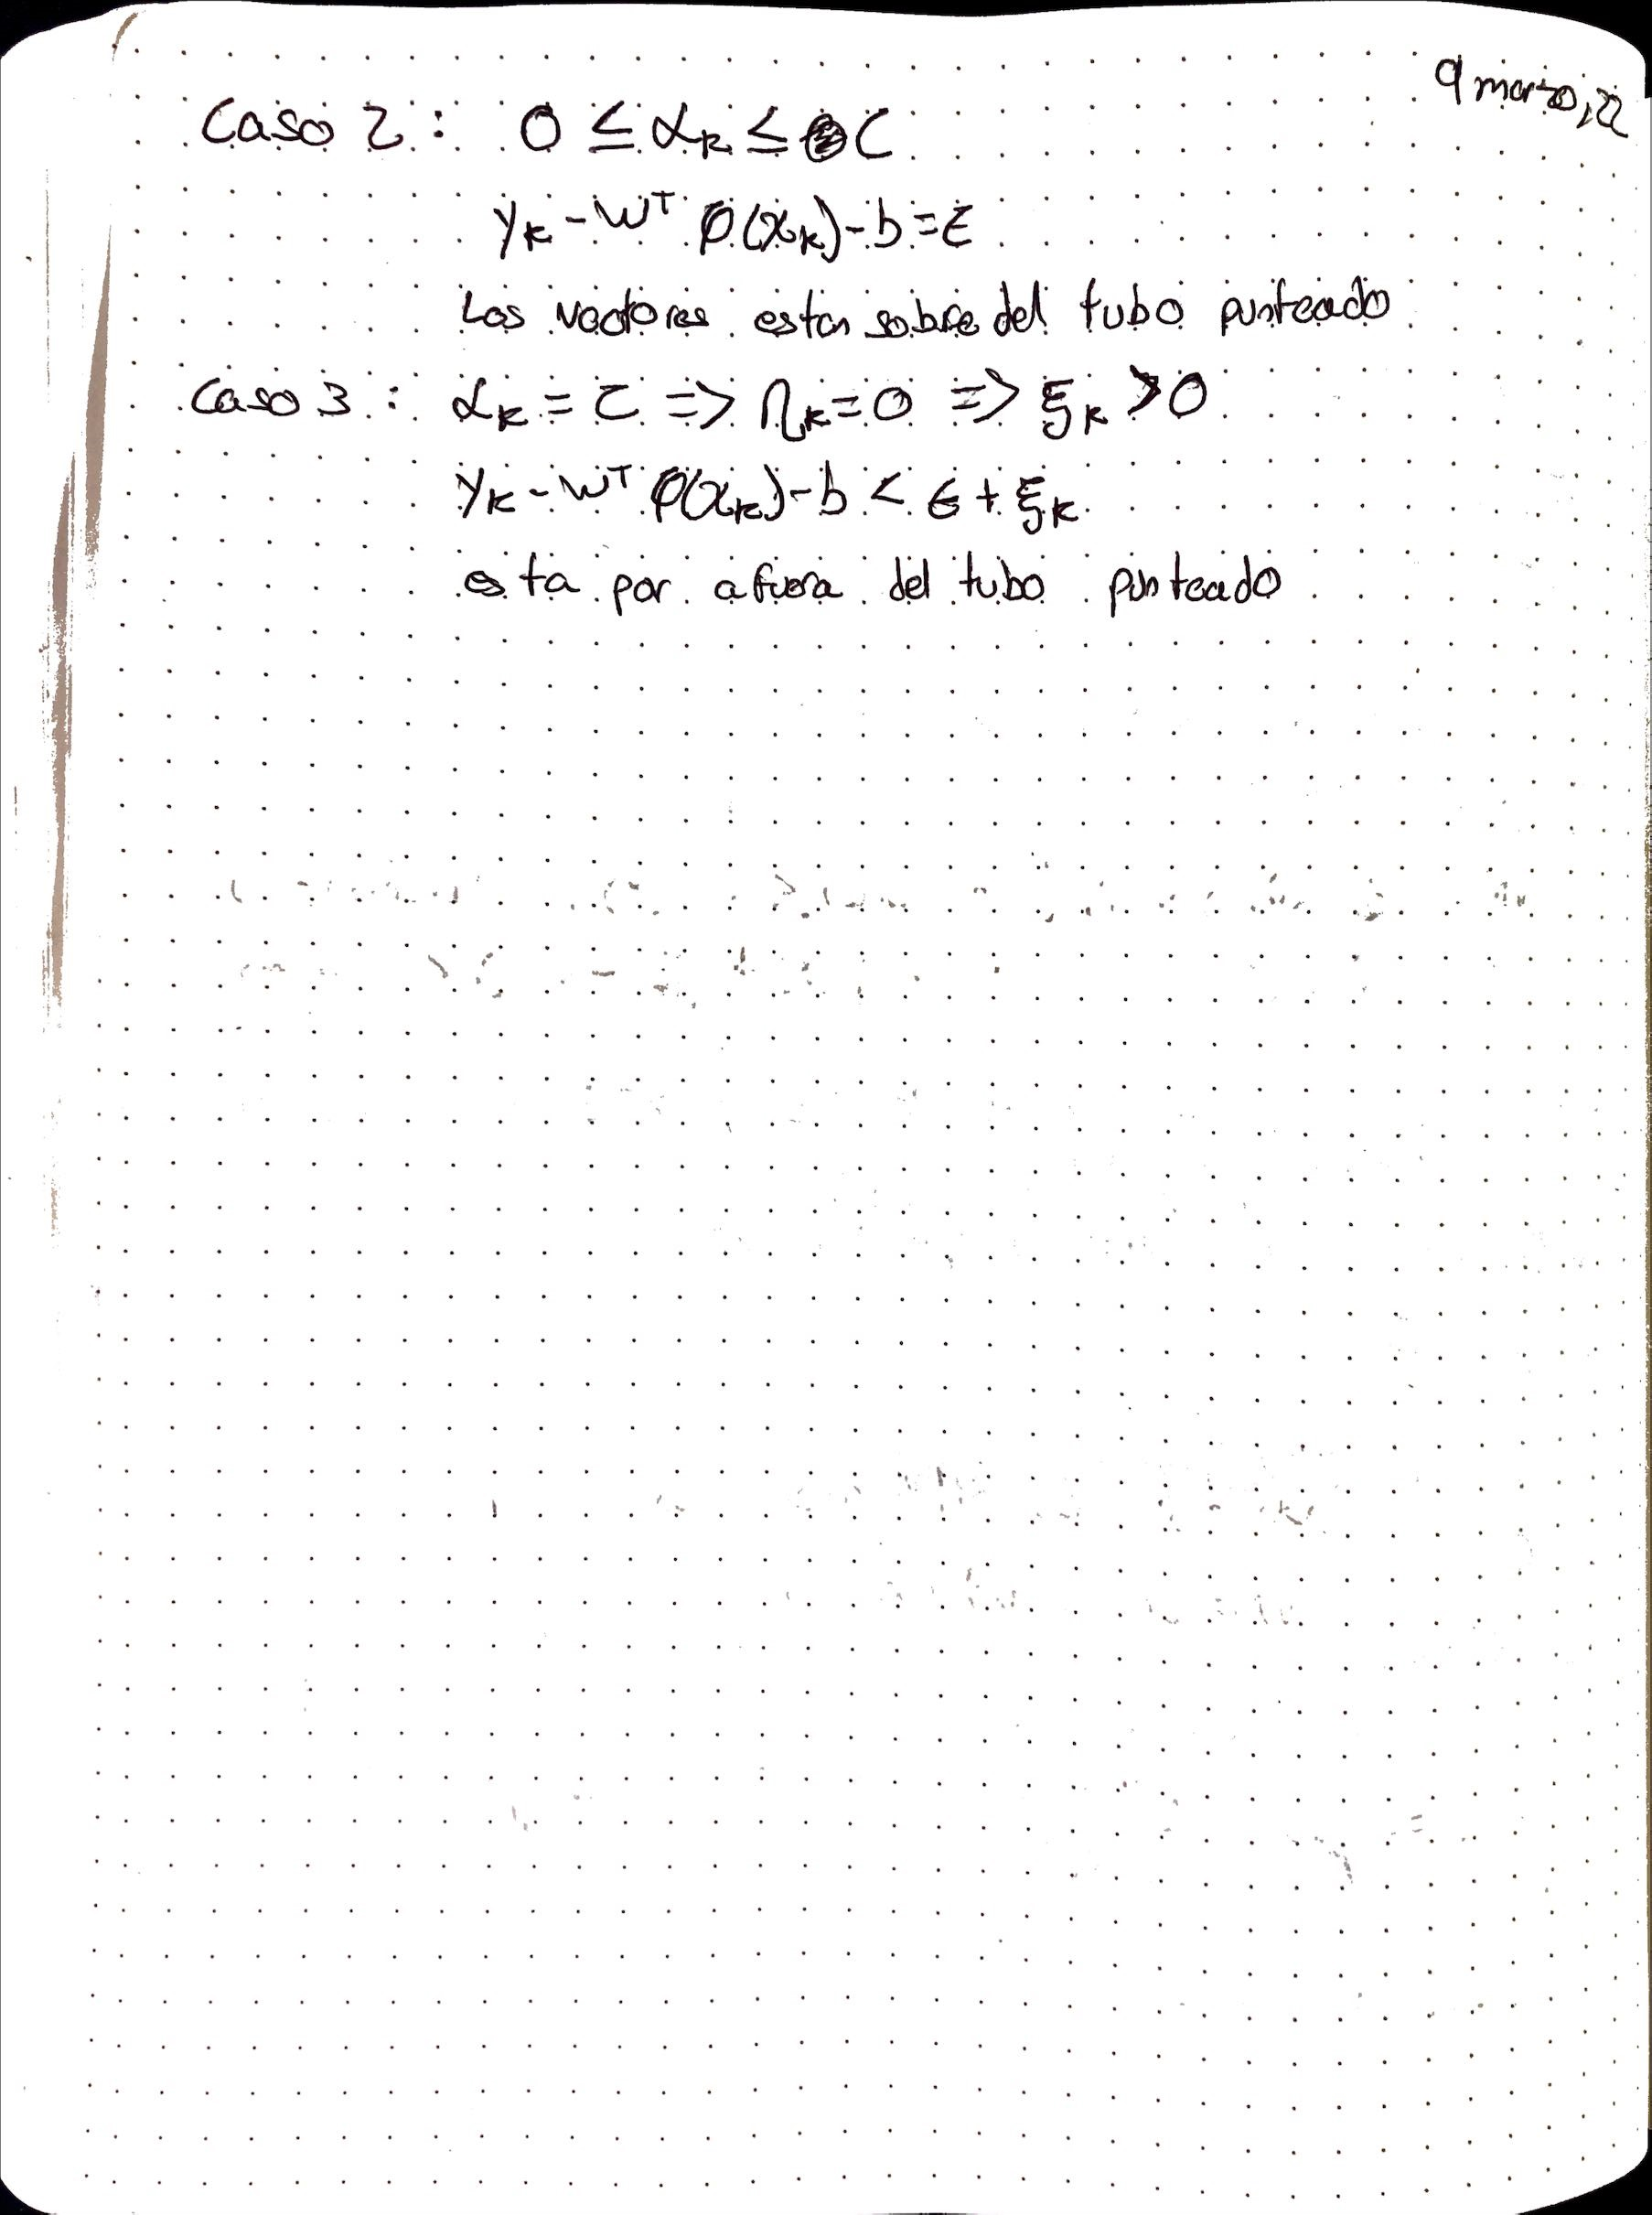 9 marzo, 22
Caso 2: 0 ≤ αk ≤ C
yk - wᵀ φ(xk) - b = ε
Los vectores estan sobre del tubo punteado
Caso 3: αk = C => ηk = 0 => ξk > 0
yk - wᵀ φ(xk) - b < ε + ξk
esta por afuera del tubo punteado